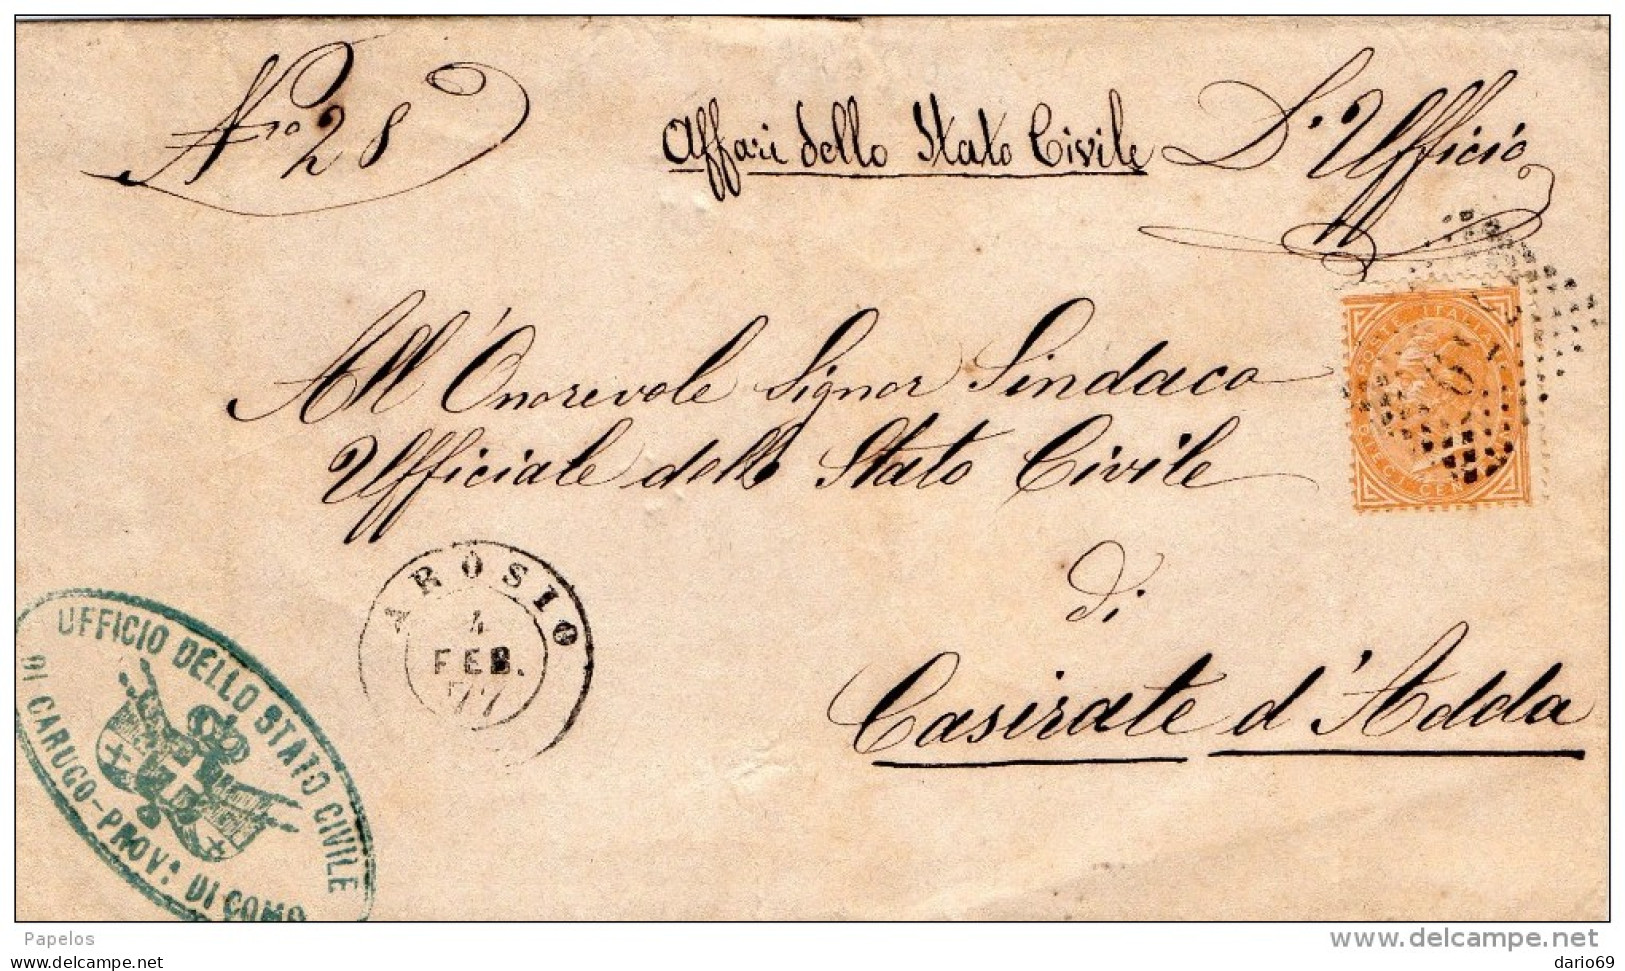 Nro 28
Affari dello Stato Civile D'Ufficio
POSTE ITALIANE
DIECI CENT
All'Onorevole Signor Sindaco
Ufficiale dello Stato Civile
di
Casirate d'Adda
AROSIO
4
FEB.
77
UFFICIO DELLO STATO CIVILE
DI CARUGO-PROV: DI COMO
Papelos
www.delcampe.net
dario69